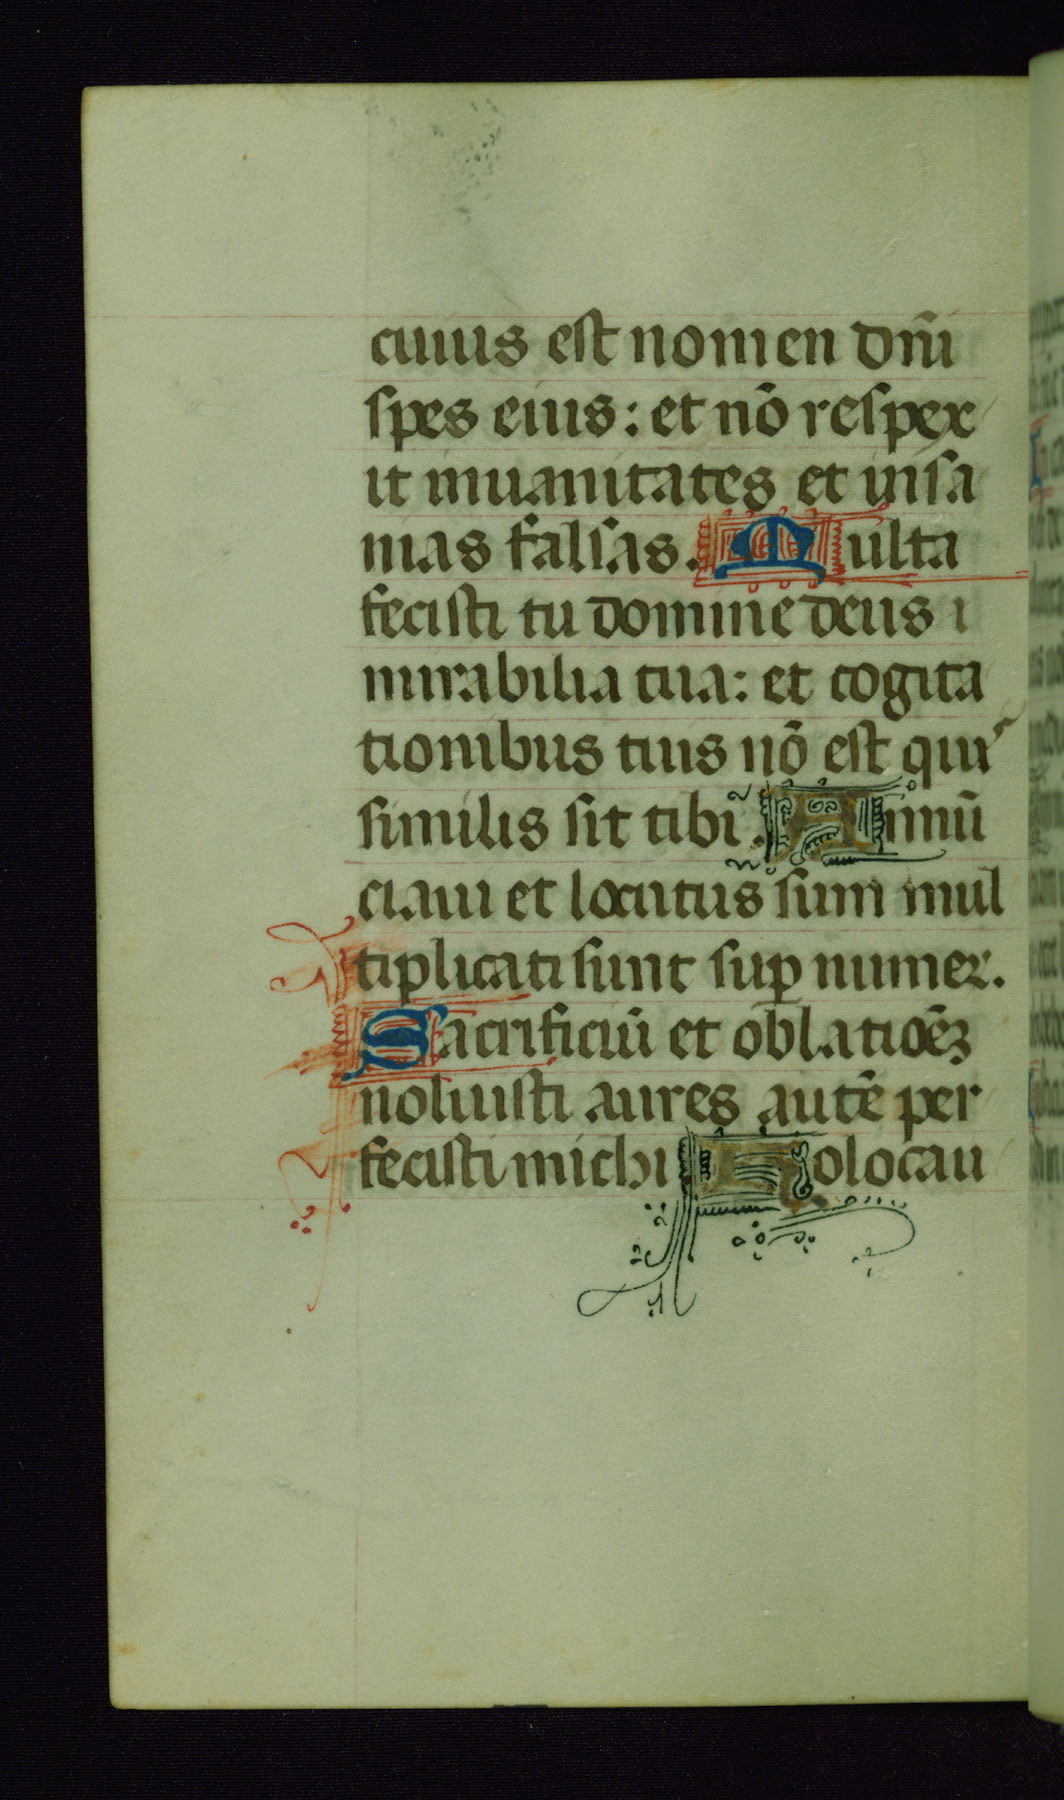 cuius est nomen dn̄i
spes eius: et nō respex
it in uanitates et insa
nias falsas. Multa
fecisti tu domine deus
mirabilia tua: et cogita
tionibus tuis nō est qui
similis sit tibi. Annū
ciaui et locutus sum mul
tiplicati sunt suꝑ numer.
Sacrificiū et oblatiōēꝫ
noluisti aures autē per
fecisti michi Holocau